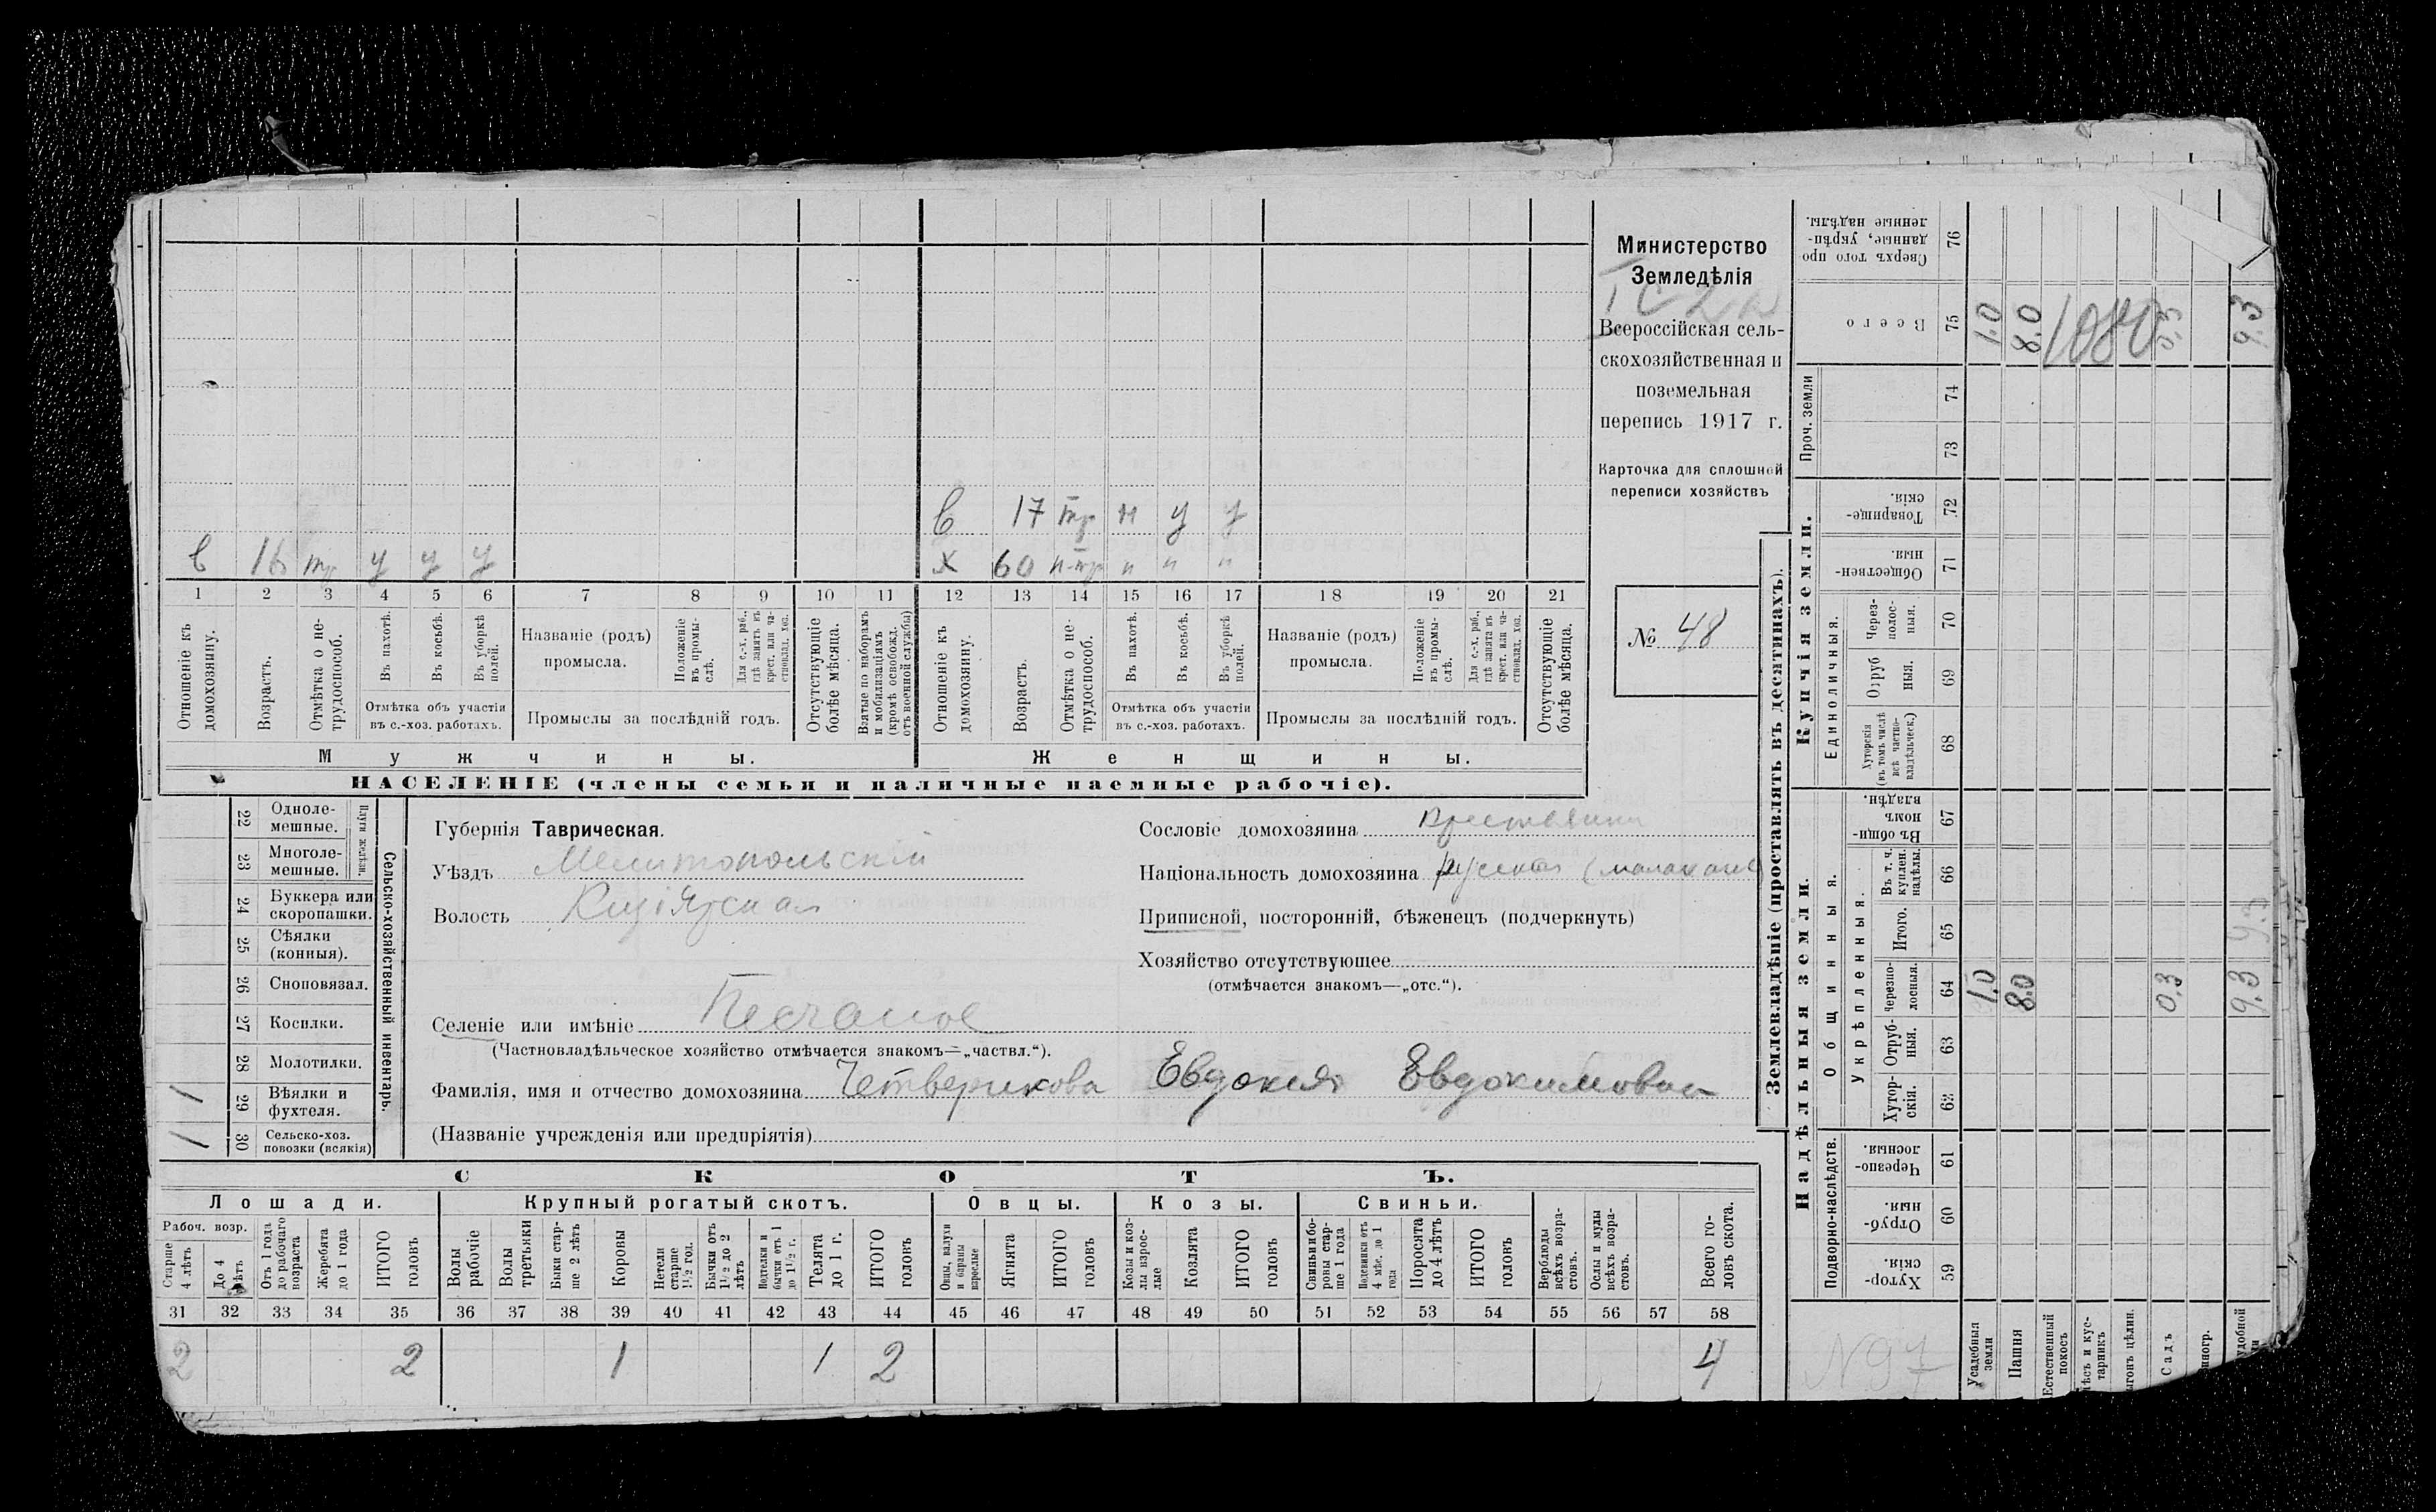 Министерство
Земледѣлія
Всероссійская сель-
скохозяйственная и
поземельная
перепись 1917 г.
Карточка для сплошной
переписи хозяйствъ
№ 48
в 17 тр н у у
в 16 тр у у у х 60 п-тр " " "
1 2 3 4 5 6 7 8 9 10 11 12 13 14 15 16 17 18 19 20 21
Отношеніе къ домохозяину.
Возрастъ.
Отмѣтка о не-трудоспособ.
Въ пахотѣ.
Въ косьбѣ.
Въ уборкѣ полей.
Отмѣтка объ участіи
въ с.-хоз. работахъ.
Названіе (родъ)
промысла.
Положеніе въ промы-слѣ.
Для с.-х. раб., гдѣ занятъ въ крест. или ча-стновлад. хоз.
Промыслы за послѣдній годъ.
Отсутствующіе болѣе мѣсяца.
Взятые по наборамъ и мобилизаціямъ (кромѣ освобожд. отъ военной службы)
Отношеніе къ домохозяину.
Возрастъ.
Отмѣтка о не-трудоспособ.
Въ пахотѣ.
Въ косьбѣ.
Въ уборкѣ полей.
Отмѣтка объ участіи
въ с.-хоз. работахъ.
Названіе (родъ)
промысла.
Положеніе въ промы-слѣ.
Для с.-х. раб., гдѣ занята въ крест. или ча-стновлад. хоз.
Промыслы за послѣдній годъ.
Отсутствующіе болѣе мѣсяца.
Мужчины. Женщины.
НАСЕЛЕНІЕ (члены семьи и наличные наемные рабочіе).
Сельско-хозяйственный инвентарь.
Плуги желѣзн.
22 Одноле-мешные.
23 Многоле-мешные.
24 Буккера или скоропашки.
25 Сѣялки (конныя).
26 Сноповязал.
27 Косилки.
28 Молотилки.
1 29 Вѣялки и фухтеля.
1 30 Сельско-хоз. повозки (всякія)
Губернія Таврическая.
Уѣздъ Мелитопольскій
Волость Кизіярская
Селеніе или имѣніе Песчаное
(Частновладѣльческое хозяйство отмѣчается знакомъ—„частвл.“).
Фамилія, имя и отчество домохозяина Четверикова Евдокия Евдокимовна
(Названіе учрежденія или предпріятія)
Сословіе домохозяина крестьянин
Національность домохозяина русская (малакане
Приписной, посторонній, бѣженецъ (подчеркнуть)
Хозяйство отсутствующее
(отмѣчается знакомъ—„отс.“).
СКОТЪ.
Лошади. Крупный рогатый скотъ. Овцы. Козы. Свиньи.
Рабоч. возр.
Старше 4 лѣтъ
До 4 лѣтъ
Отъ 1 года до рабочаго возраста
Жеребята до 1 года
ИТОГО головъ
Волы рабочіе
Волы третьяки
Быки стар-ше 2 лѣтъ
Коровы
Нетели старше 1½ год.
Бычки отъ 1½ до 2 лѣтъ
Подтелки и бычки отъ 1 до 1½ г.
Телята до 1 г.
ИТОГО головъ
Овцы, валухи и бараны взрослые
Ягнята
ИТОГО головъ
Козы и коз-лы взрос-лые
Козлята
ИТОГО головъ
Свиньи и бо-ровы стар-ше 1 года
Подсвинки отъ 4 мѣс. до 1 года
Поросята до 4 лѣтъ
ИТОГО головъ
Верблюды всѣхъ возра-стовъ.
Ослы и мулы всѣхъ возра-стовъ.
Всего го-ловъ скота.
31 32 33 34 35 36 37 38 39 40 41 42 43 44 45 46 47 48 49 50 51 52 53 54 55 56 57 58
2 2 1 1 2 4
Землевладѣніе (проставлять въ десятинахъ).
Надѣльныя земли.
Купчія земли.
Проч. земли
Подворно-наслѣдств.
Общинныя.
Укрѣпленныя.
Единоличныя.
Сверхъ того про-данные, укрѣп-ленные надѣлы. 76
Всего 75 1.0 8.0 1080 0,3 9.3
74
73
Товарище-скія. 72
Обществен-ныя. 71
Через-полос-ныя. 70
Отруб ныя. 69
Хуторскія (въ томъ числѣ всѣ частно-владѣльческ.) 68
Въ общи-номъ владѣн. 67
Въ т. ч. куплен. надѣлы. 66
Итого. 65 9.3
Черезпо-лосныя. 64 1.0 8.0 0.3 9.3
Отруб-ныя. 63
Хутор-скія. 62
Черезпо-лосныя. 61
Отруб-ныя. 60
Хутор-скія. 59
N 97
Усадебныя земли
Пашня
Естественный покосъ
лѣсъ и кус-тарникъ
ыгонъ цѣлин.
Садъ
иногр.
удобной